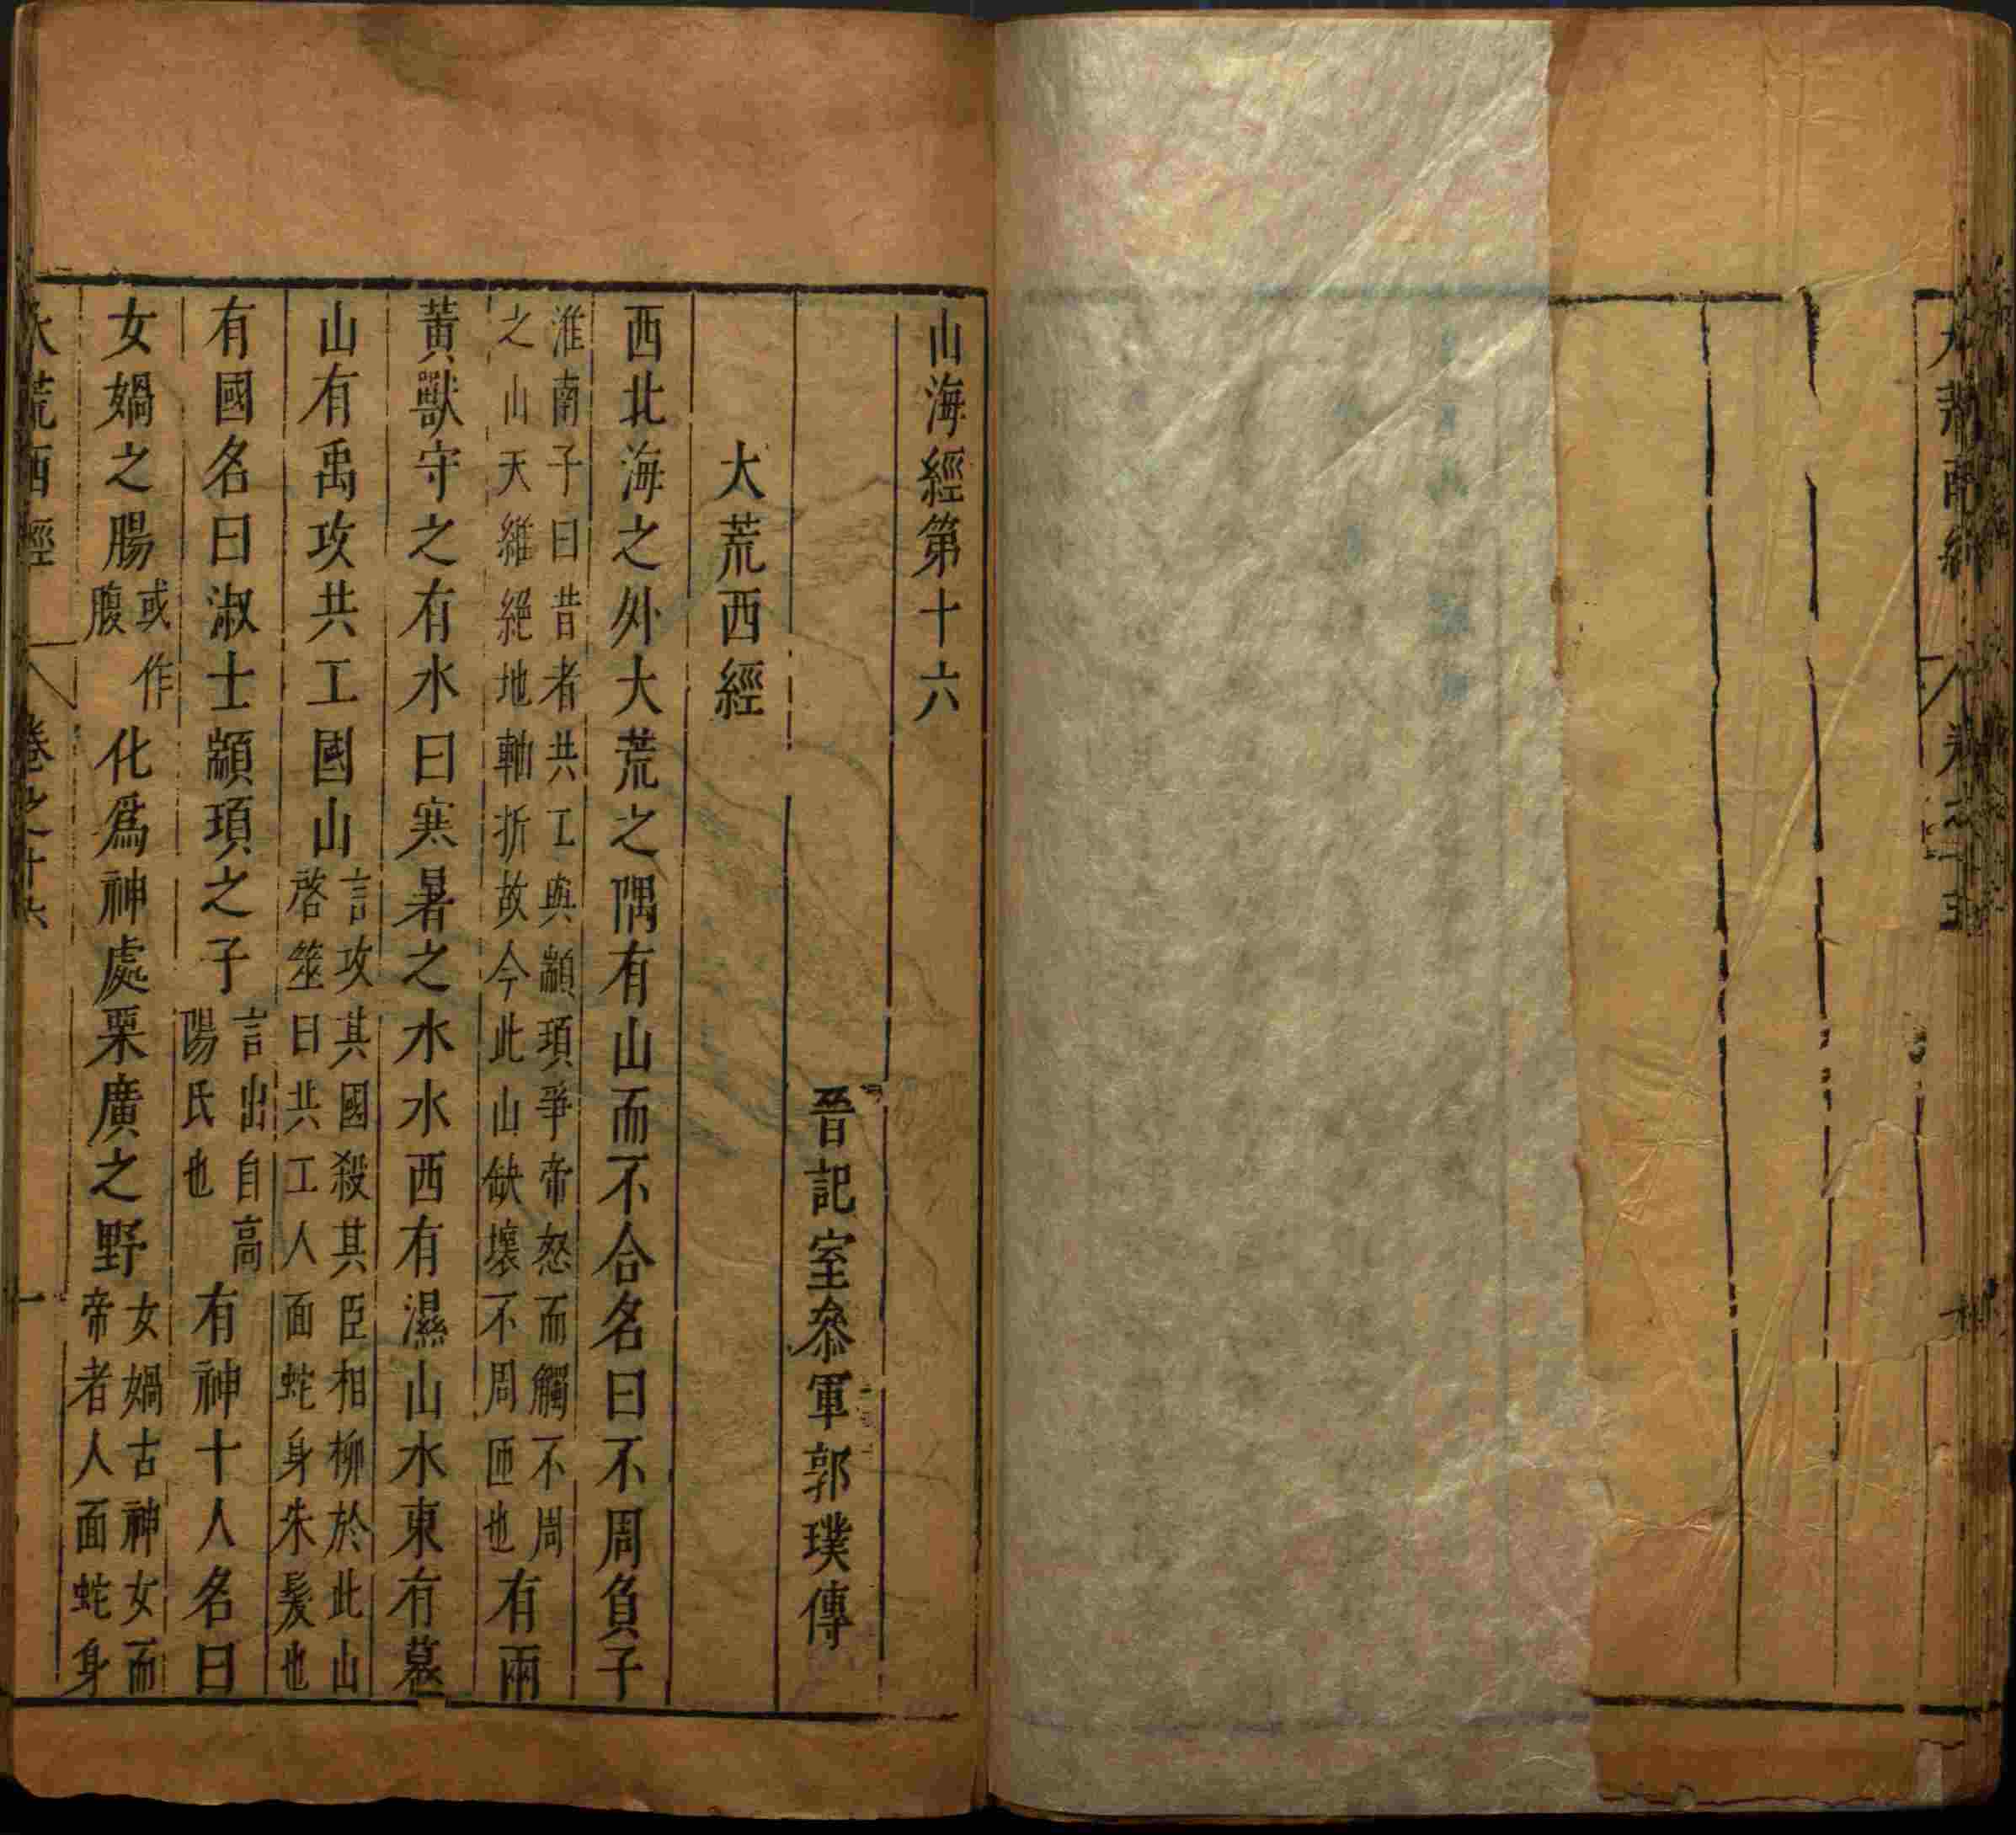 大荒南經 卷之十五
山海經第十六
晉記室叅軍郭璞傳
大荒西經
西北海之外大荒之隅有山而不合名曰不周負子
淮南子曰昔者共工與顓頊爭帝怒而觸不周之山天維絕地軸折故今此山缺壞不周匝也有兩
黃獸守之有水曰寒暑之水水西有濕山水東有幕
山有禹攻共工國山言攻其國殺其臣相柳於此山啓筮曰共工人面蛇身朱髮也
有國名曰淑士顓頊之子言出自高陽氏也有神十人名曰
女媧之腸或作腹化爲神處栗廣之野女媧古神女而帝者人面蛇身
大荒西經 卷之十六 一